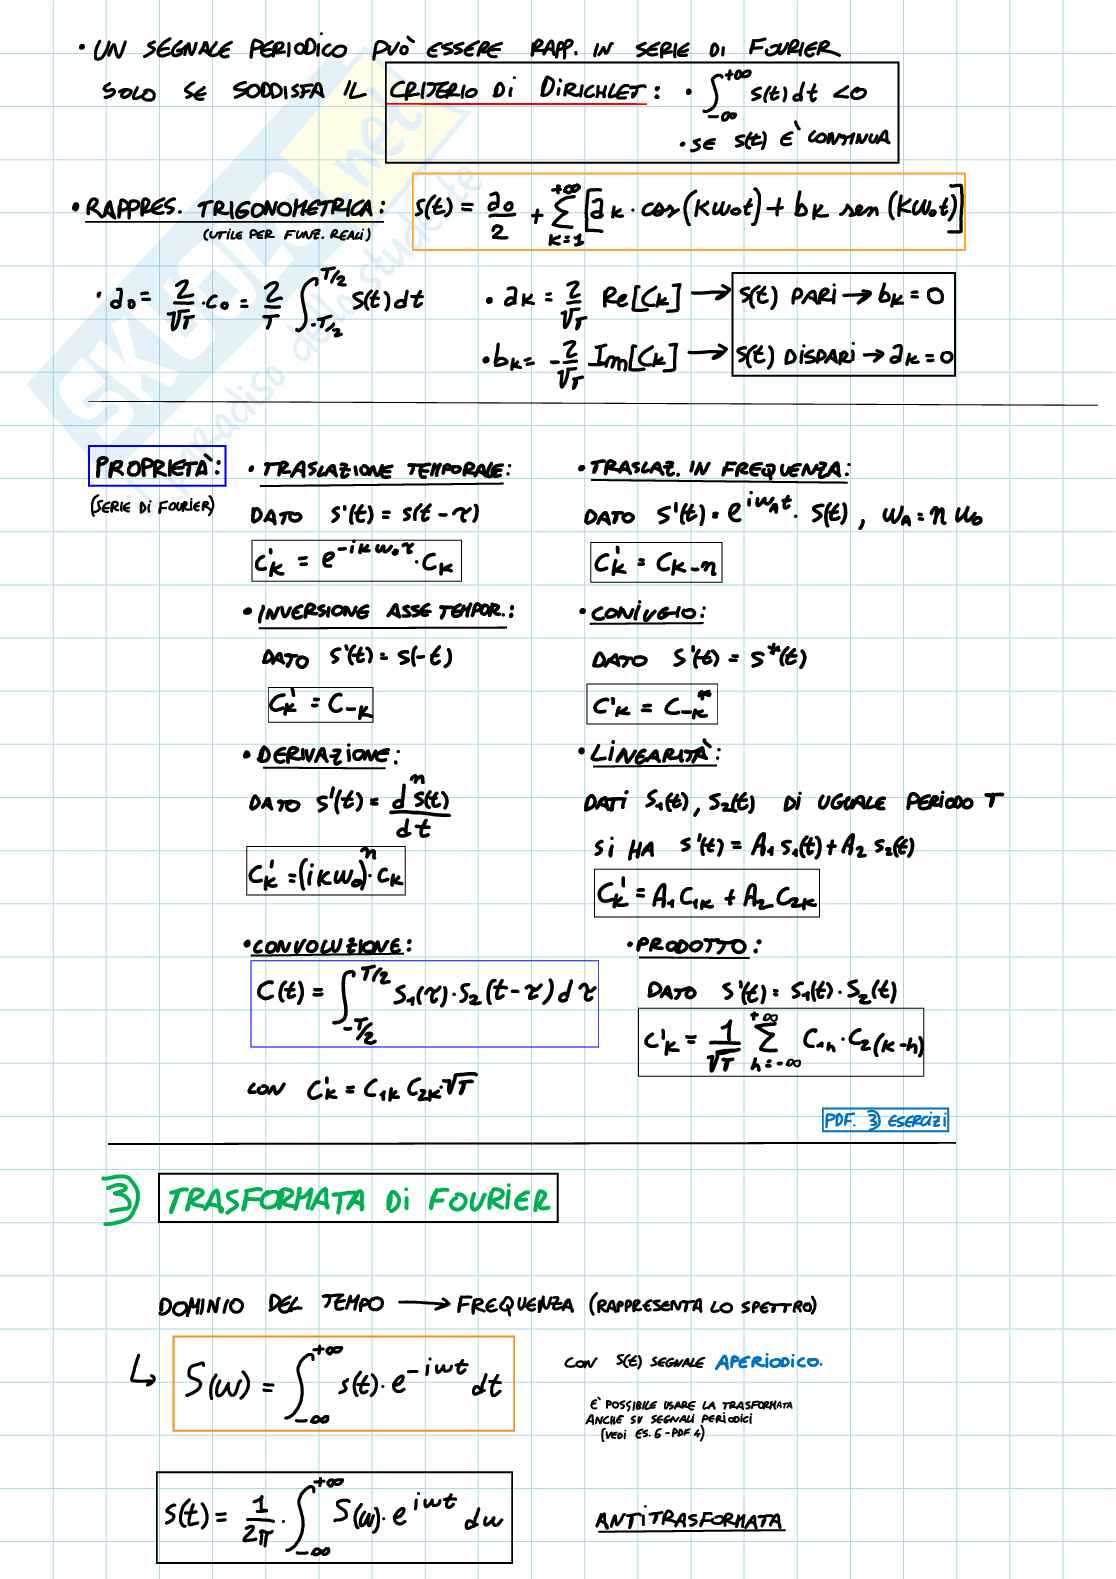 • UN SEGNALE PERIODICO PUÒ ESSERE RAPP. IN SERIE DI FOURIER
SOLO SE SODDISFA IL CRITERIO DI DIRICHLET: • ∫_{-∞}^{+∞} s(t) dt < 0
• SE s(t) È CONTINUA
• RAPPRES. TRIGONOMETRICA: s(t) = a₀/2 + Σ_{k=1}^{+∞} [a_k · cos(kω₀t) + b_k sen(kω₀t)]
(UTILE PER FUNZ. REALI)
• a₀ = 2/√T · c₀ = 2/T ∫_{-T/2}^{T/2} s(t) dt
• a_k = 2/√T Re[C_k] → s(t) PARI → b_k = 0
• b_k = -2/√T Im[C_k] → s(t) DISPARI → a_k = 0
PROPRIETÀ:
(SERIE DI FOURIER)
• TRASLAZIONE TEMPORALE:
DATO s'(t) = s(t-τ)
C'_k = e^{-ikω₀τ} · C_k
• TRASLAZ. IN FREQUENZA:
DATO s'(t) = e^{iω_n t} · s(t), ω_n = n ω₀
C'_k = C_{k-n}
• INVERSIONE ASSE TEMPOR.:
DATO s'(t) = s(-t)
C'_k = C_{-k}
• CONIUGIO:
DATO s'(t) = s*(t)
C'_k = C_{-k}*
• DERIVAZIONE:
DATO s'(t) = d^n s(t)/dt
C'_k = (ikω₀)^n · C_k
• LINEARITÀ:
DATI s₁(t), s₂(t) DI UGUALE PERIODO T
SI HA s'(t) = A₁ s₁(t) + A₂ s₂(t)
C'_k = A₁ C_{1k} + A₂ C_{2k}
• CONVOLUZIONE:
C(t) = ∫_{-T/2}^{T/2} s₁(τ) · s₂(t-τ) dτ
CON C'_k = C_{1k} C_{2k} · √T
• PRODOTTO:
DATO s'(t) = s₁(t) · s₂(t)
C'_k = 1/√T Σ_{h=-∞}^{+∞} C_{1h} · C_{2(k-h)}
PDF. 3) ESERCIZI
3) TRASFORMATA DI FOURIER
DOMINIO DEL TEMPO → FREQUENZA (RAPPRESENTA LO SPETTRO)
↳ S(ω) = ∫_{-∞}^{+∞} s(t) · e^{-iωt} dt
CON s(t) SEGNALE APERIODICO.
È POSSIBILE USARE LA TRASFORMATA
ANCHE SU SEGNALI PERIODICI
(VEDI ES. 6 - PDF 4)
s(t) = 1/2π · ∫_{-∞}^{+∞} S(ω) · e^{iωt} dω
ANTITRASFORMATA